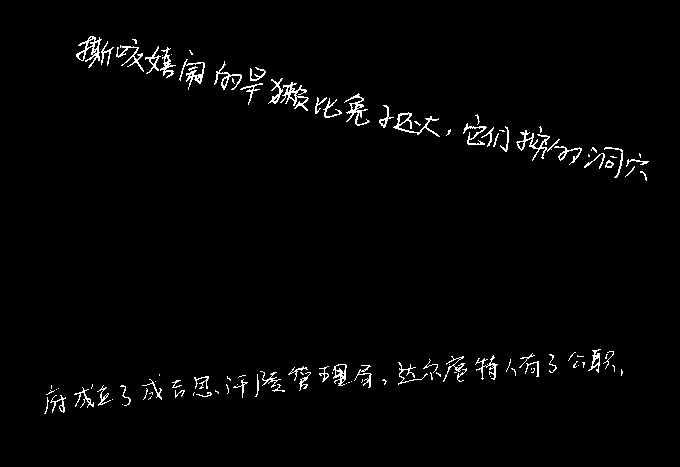 撕咬嬉闹的旱獭比兔子还大，它们挖的洞穴
府成立了成吉思汗陵管理局，达尔扈特人有了公职，